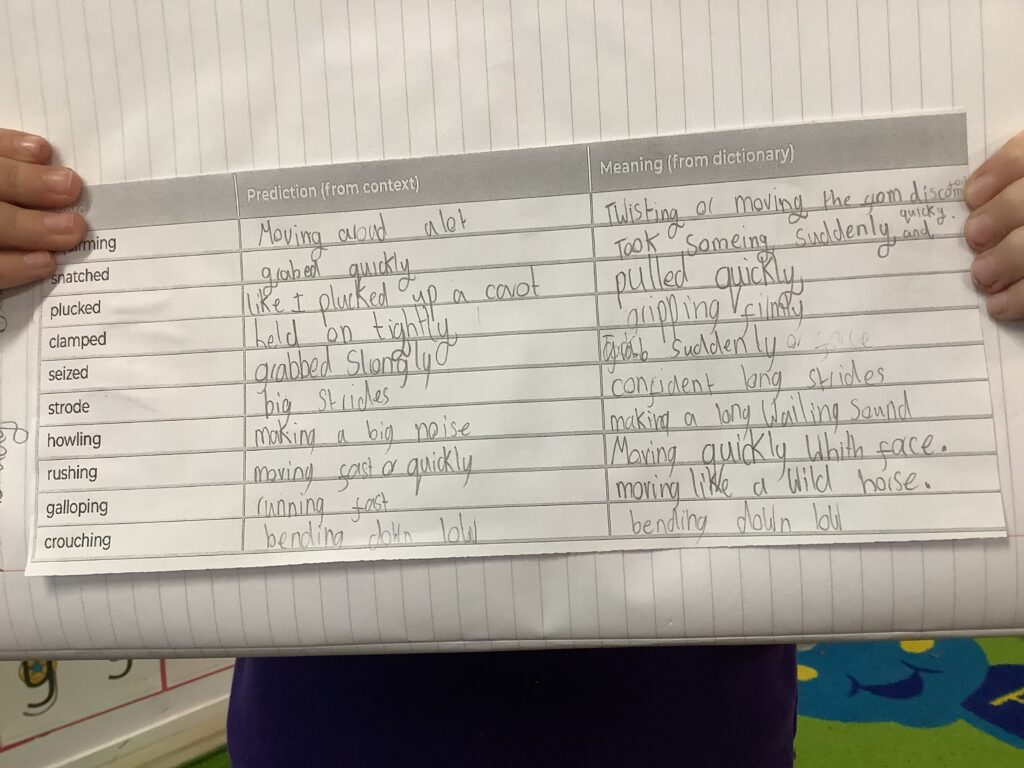 Prediction (from context) Meaning (from dictionary)
rming Moving aroud alot Twisting or moving the from discom
snatched grabed quickly Took someing suddenly and quicky.
plucked like I plucked up a carot pulled quickly
clamped held on tightly gripping firmly
seized grabbed Strongly grab suddenly or force
strode big strides confident long strides
howling making a big noise making a long Wailing Sound
rushing moving fast or quickly Moving quickly Whith force.
galloping running fast moving like a Wild horse.
crouching bending down low bending down low